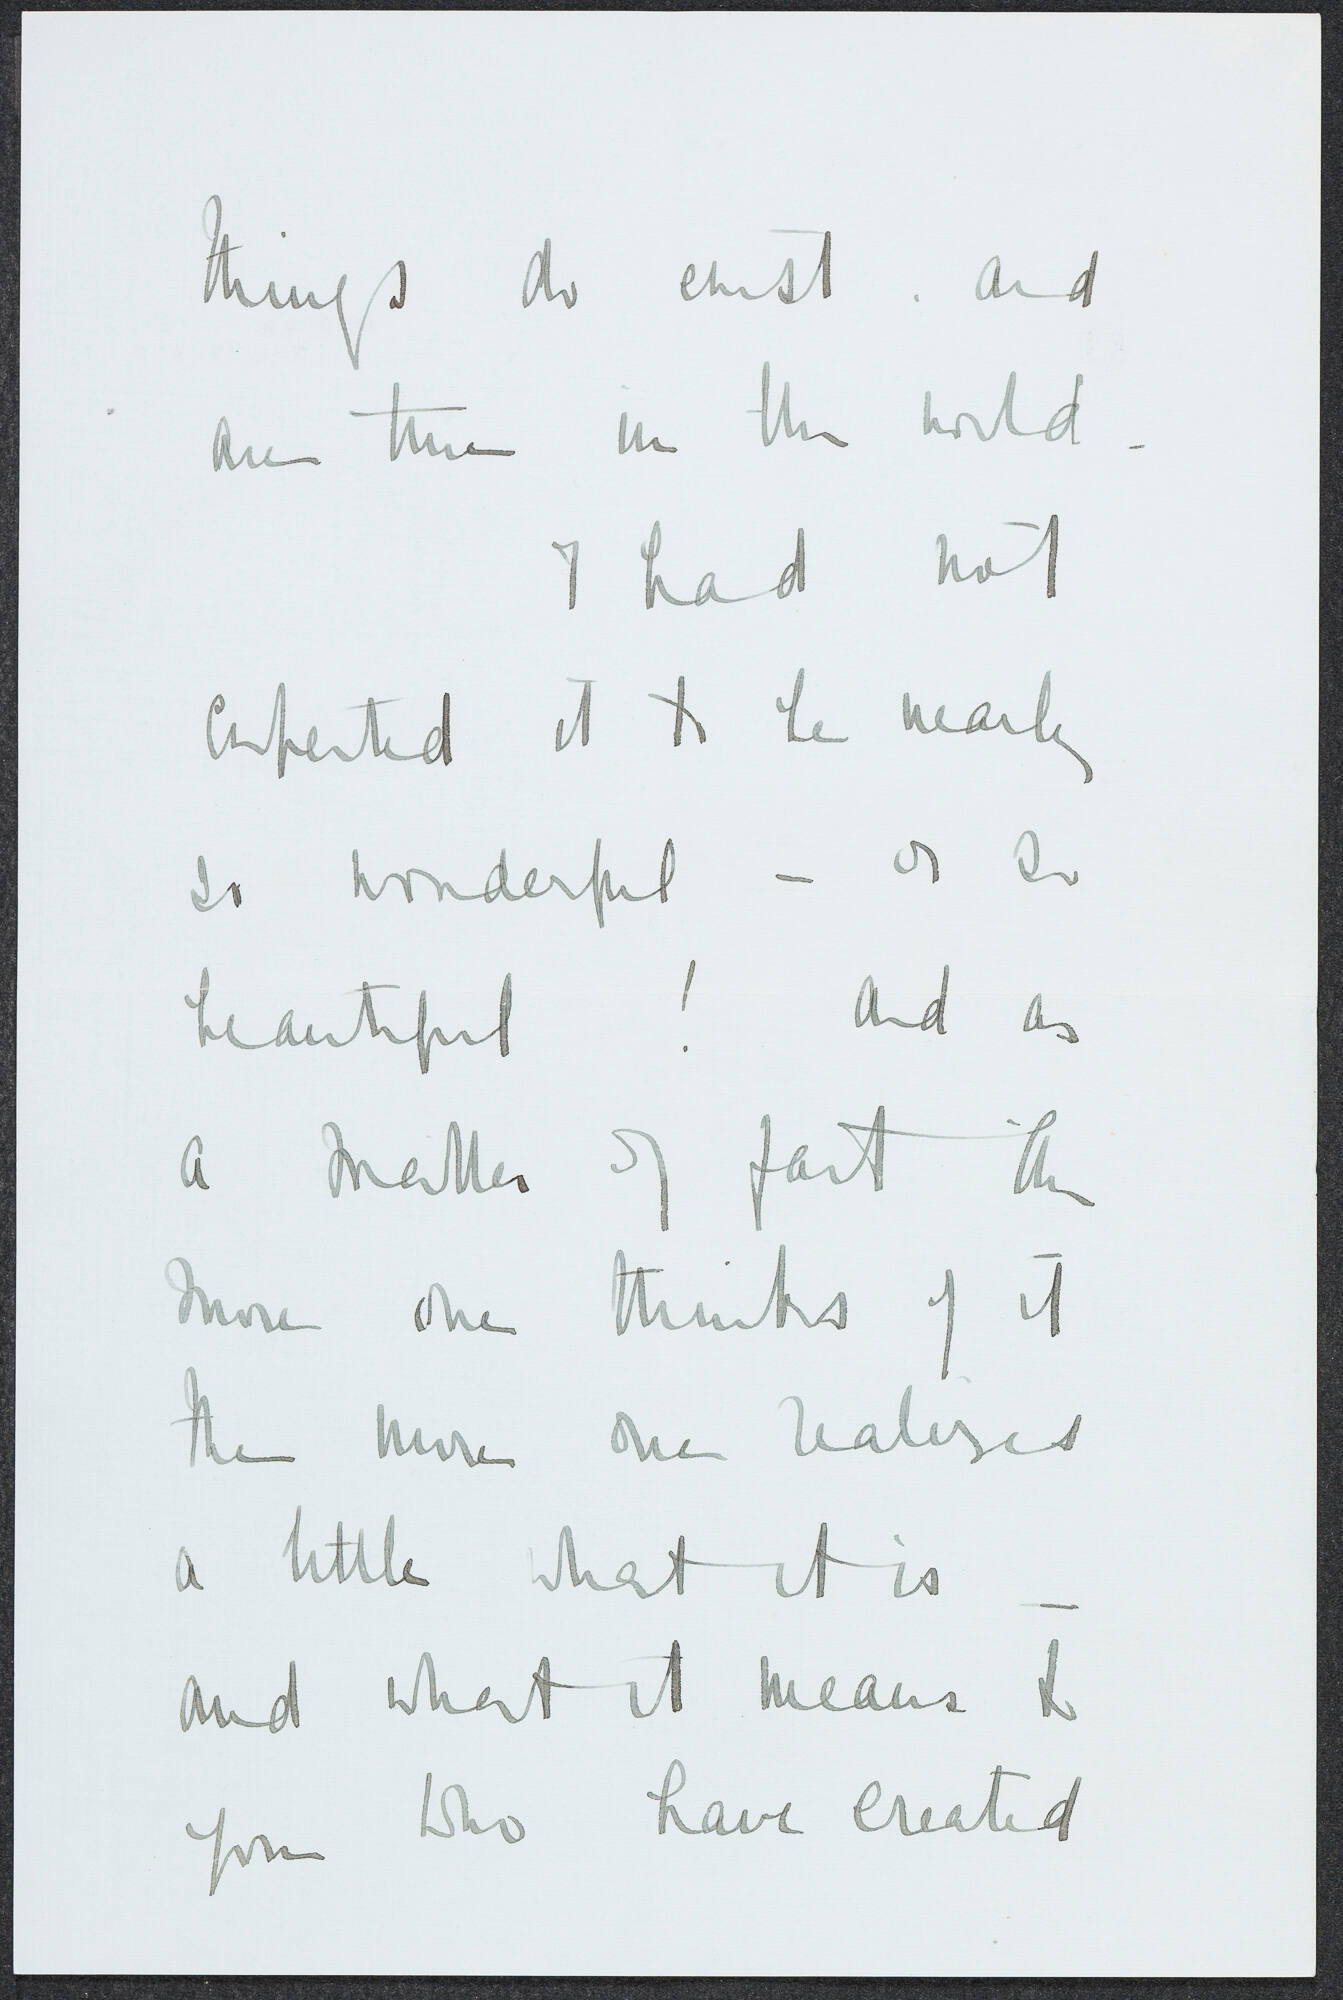 things do exist. and
are there in the world -
I had not
expected it to be nearly
so wonderful - or so
beautiful! And as
a matter of fact the
more one thinks of it
the more one realizes
a little what it is -
and what it means to
you who have created